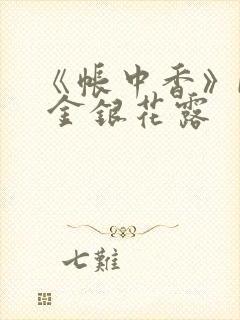 《帐中香》
金银花露
七難